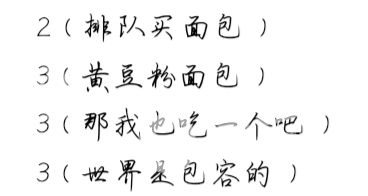 2(排队买面包)
3(黄豆粉面包)
3(那我也吃一个吧)
3(世界是包容的)